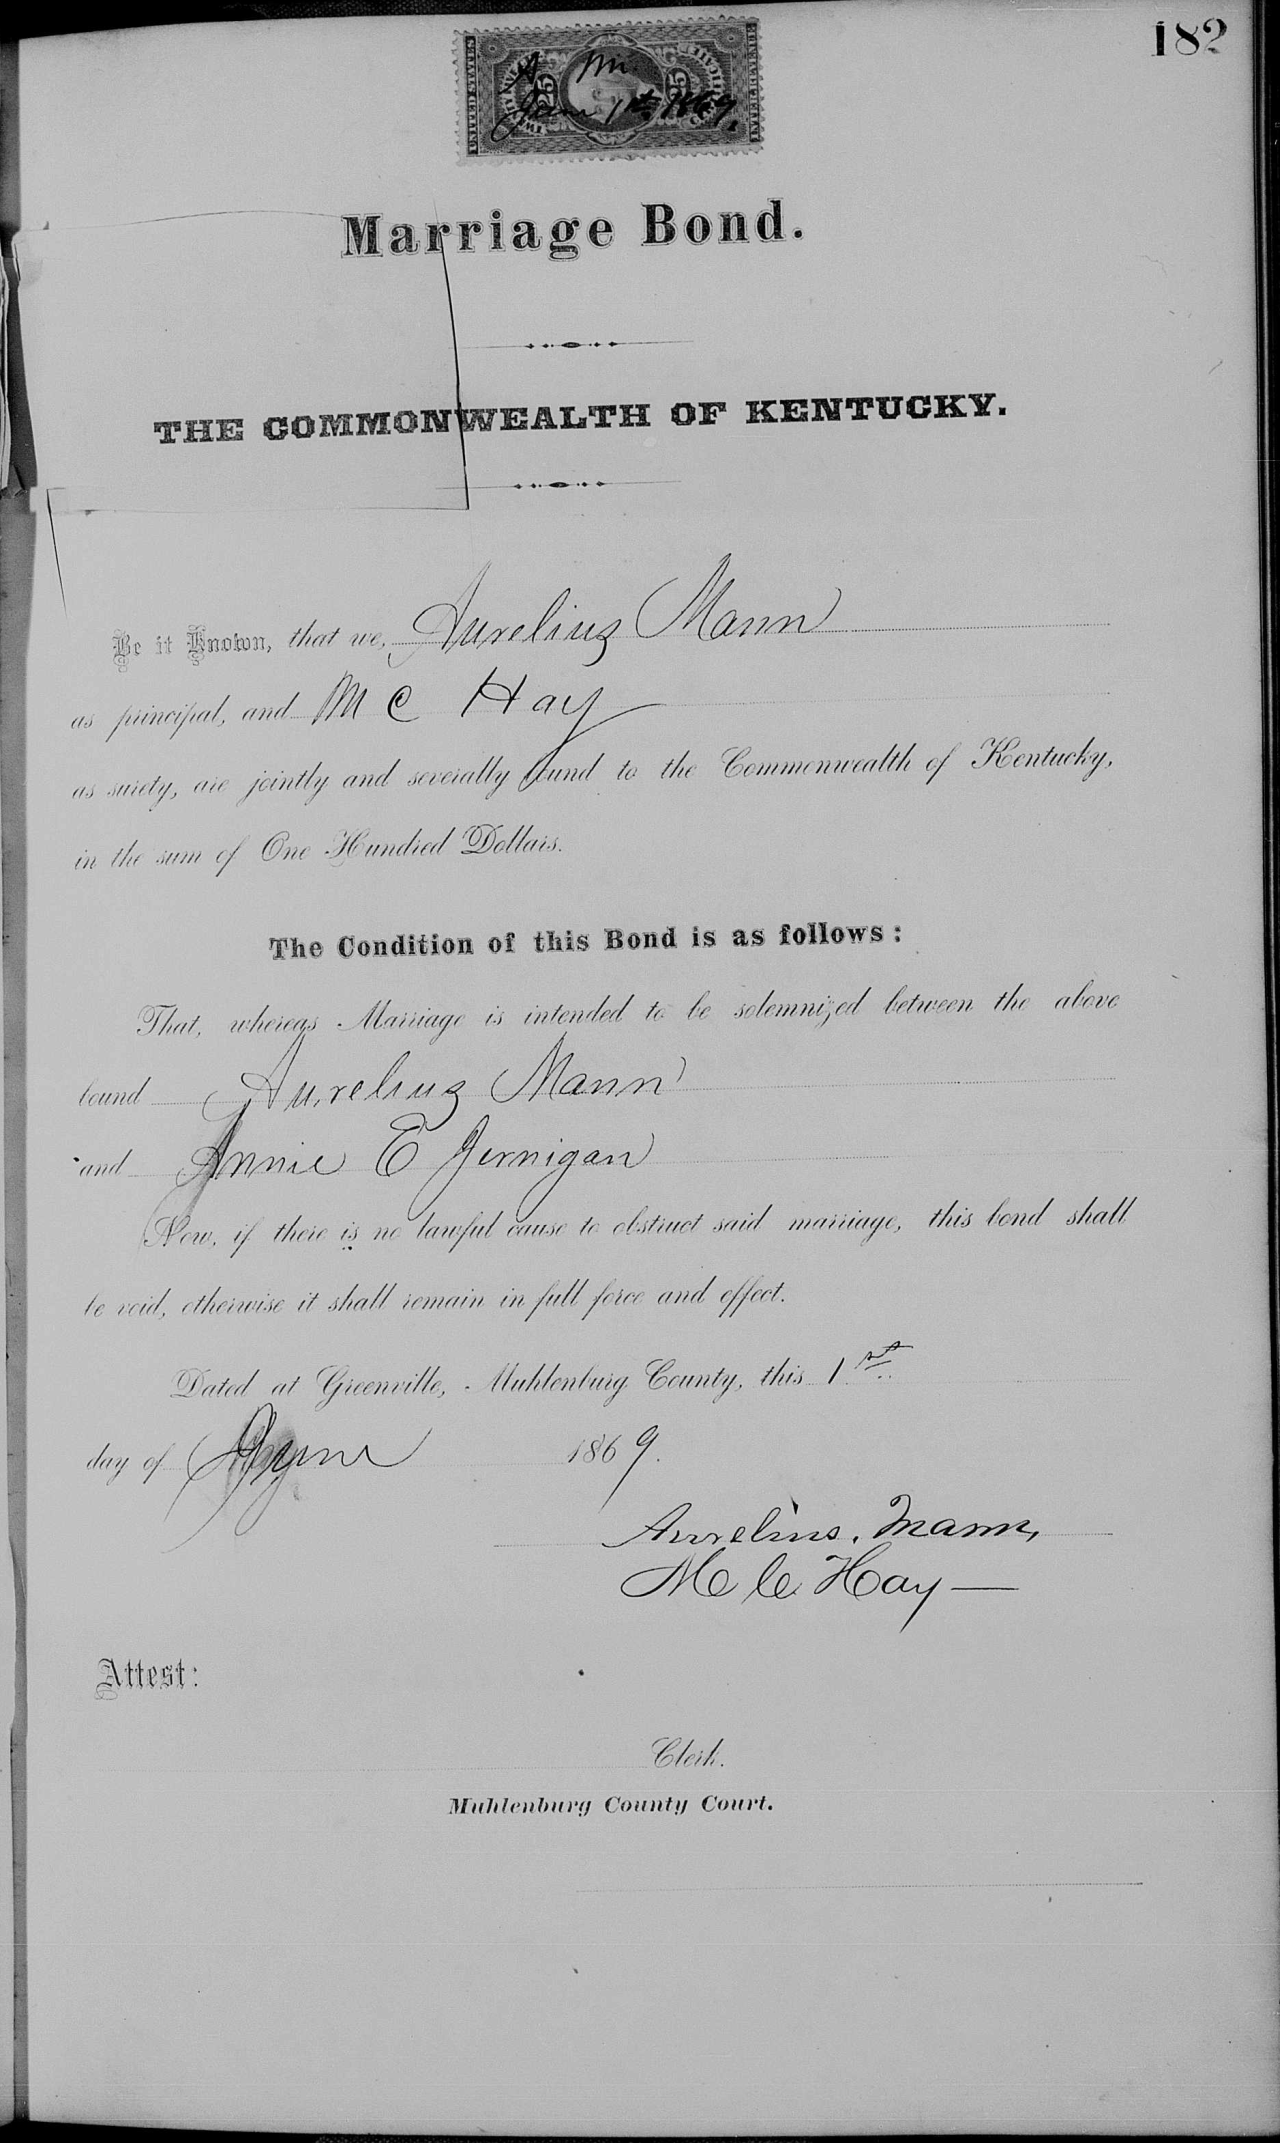 182
UNITED STATES
INTER. REVENUE
25
25
A M.
June 1st 1869.
Marriage Bond.
THE COMMONWEALTH OF KENTUCKY.
Be it Known, that we, Aurelius Mann
as principal, and M C Hay
as surety, are jointly and severally bound to the Commonwealth of Kentucky,
in the sum of One Hundred Dollars.
The Condition of this Bond is as follows:
That, whereas Marriage is intended to be solemnized between the above
bound Aurelius Mann
and Annie E Jernigan
Now, if there is no lawful cause to obstruct said marriage, this bond shall
be void, otherwise it shall remain in full force and effect.
Dated at Greenville, Muhlenburg County, this 1st
day of June 1869.
Aurelius. Mann,
M C Hay —
Attest:
Clerk.
Muhlenburg County Court.